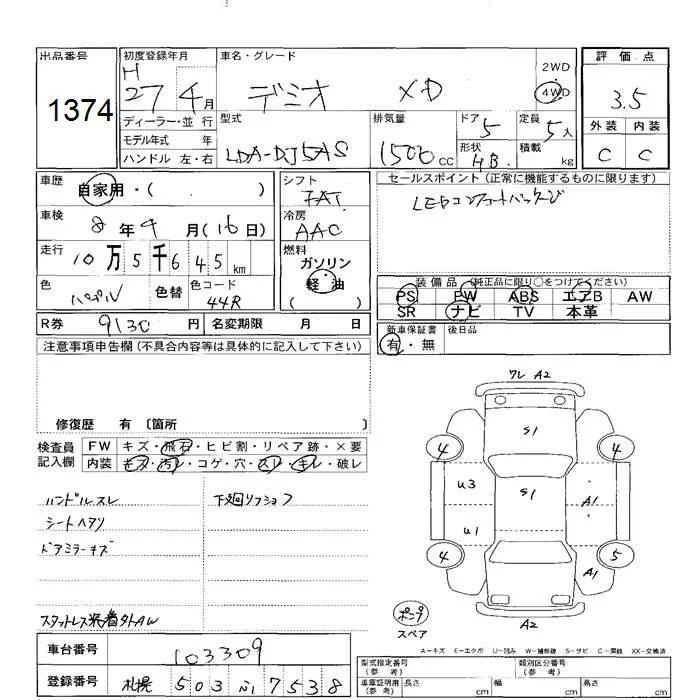 出品番号 初度登録年月 車名・グレード 2WD 評価点
1374 H 27 4月 デミオ XD 4WD 3.5
ディーラー・並行 型式 排気量 ドア 定員 外装 内装
モデル年式 年 LDA-DJ5AS 1500cc 5 5人 C C
ハンドル 左・右 形状 HB 積載 kg
車歴 自家用・( ) シフト FAT セールスポイント(正常に機能するものに限ります)
車検 8年4月(16日) 冷房 AAC LEDコンフォートパッケージ
走行 10万5千645km 燃料 ガソリン 軽油 ( )
色 パープル 色替 色コード 44R 装備品(純正品に限り○をつけてください)
PS PW ABS エアB AW
SR ナビ TV 本革
R券 9130円 名変期限 月 日 新車保証書 有・無 後日品
注意事項申告欄(不具合内容等は具体的に記入して下さい)
ワレ A2
修復歴 有 〔箇所
S1
検査員 FW キズ・飛石・ヒビ割・リペア跡・×要 4 4
記入欄 内装 キズ・汚レ・コゲ・穴・スレ・キレ・破レ
U3 S1 A1
ハンドルスレ 下廻リフショク
シートヘタリ U1
ドアミラーキズ 4 5
A1
スタットレス装着外AW
テンプ
スペア A2
A-キズ E-エクボ U-凹み W-補修跡 S-サビ C-腐蝕 XX-交換済
車台番号 103309 型式指定番号(参考) 類別区分番号(参考)
登録番号 札幌 503 ふ 7538 車庫証明用(参考) 長さ cm 幅 cm 高さ cm